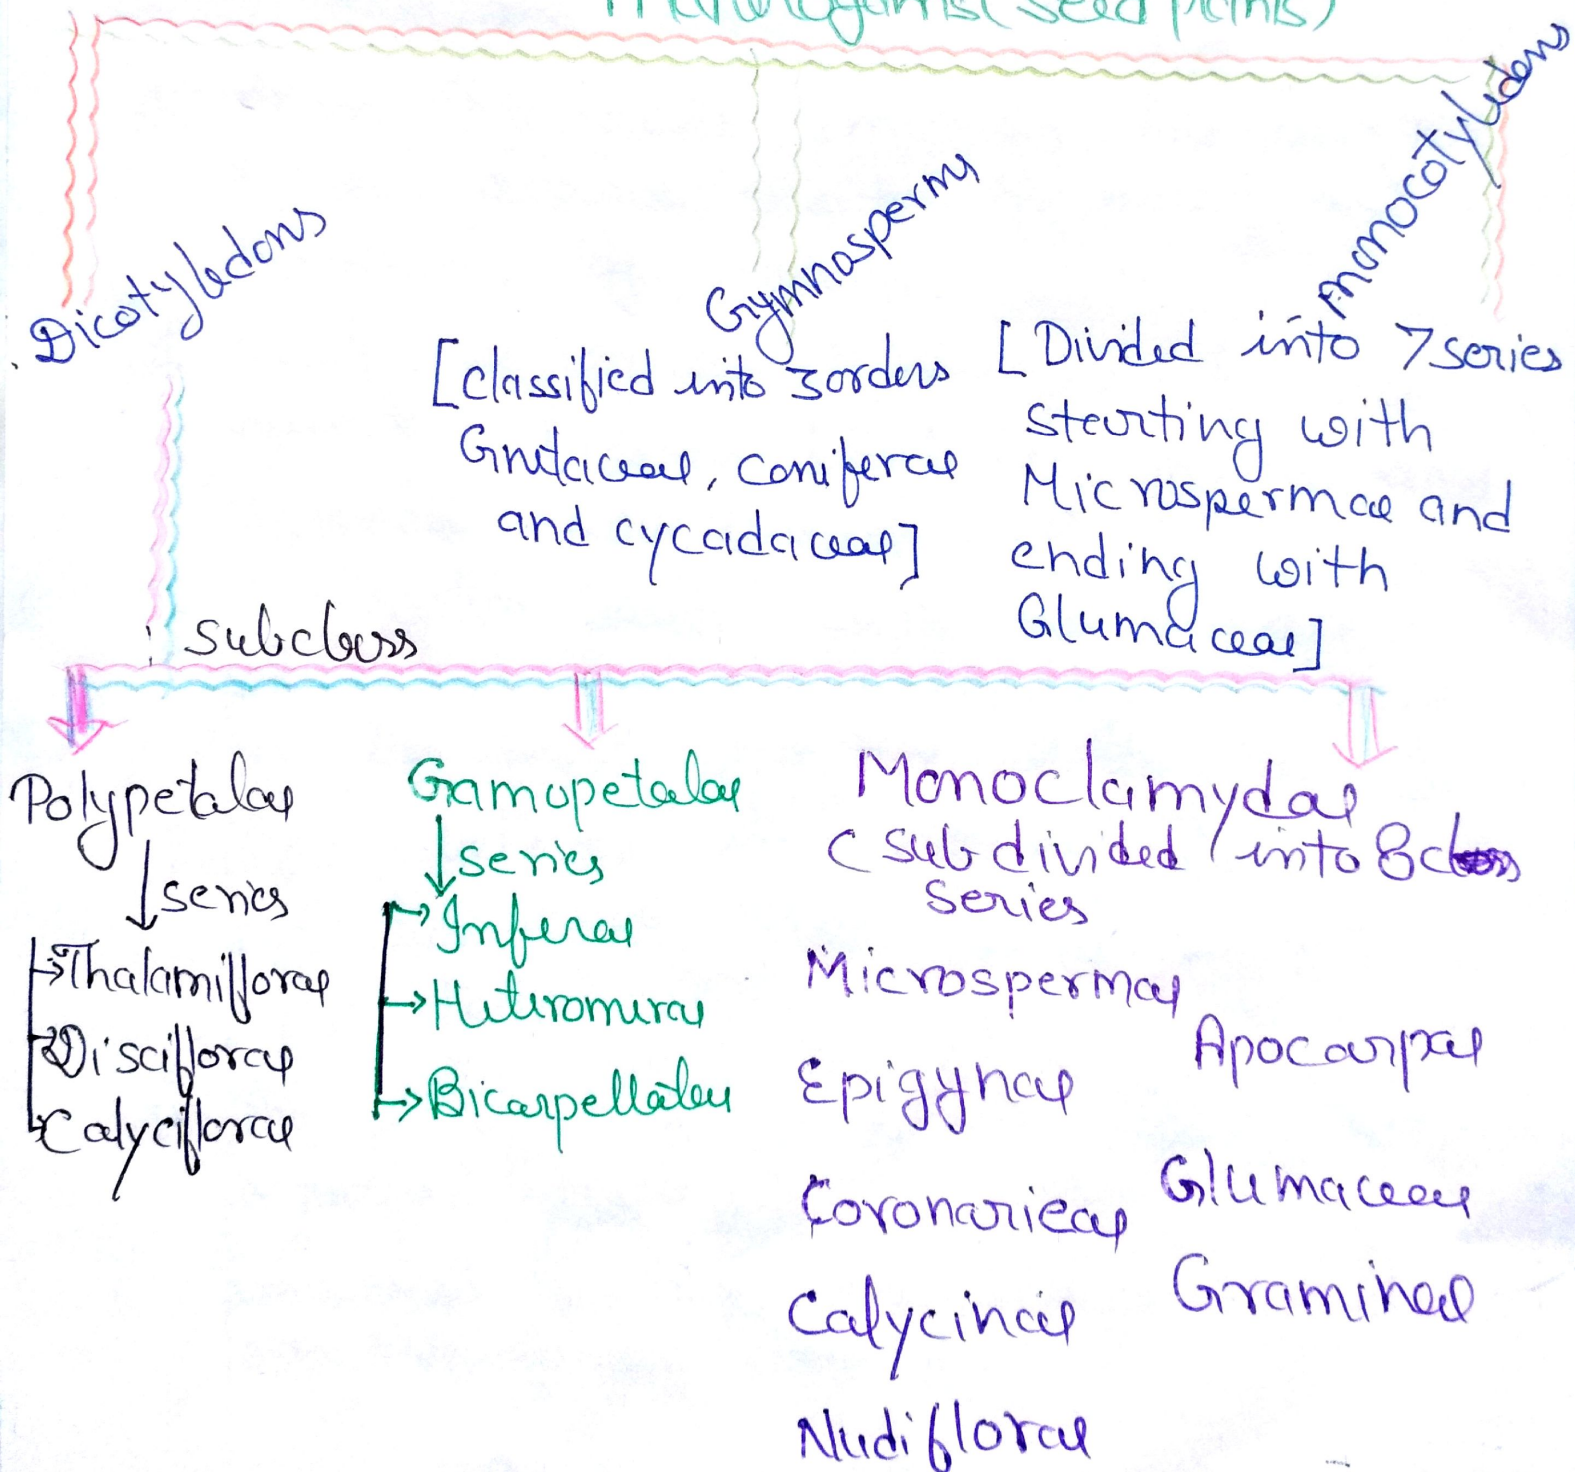 (seed plants)
Dicotyledons
Gymnosperms
monocotyledons
[classified into 3orders
Gnetaceae, coniferae
and cycadaceae]
[Divided into 7series
starting with
Microspermae and
ending with
Glumaceae]
subclass
Polypetalae
series
Thalamiflorae
Disciflorae
Calyciflorae
Gamopetalae
series
Inferae
Heteromerae
Bicarpellatae
Monoclamydae
(subdivided into 8
series
Microspermae
Apocarpae
Epigynae
Coronarieae
Glumaceae
Calycinae
Gramineae
Nudiflorae